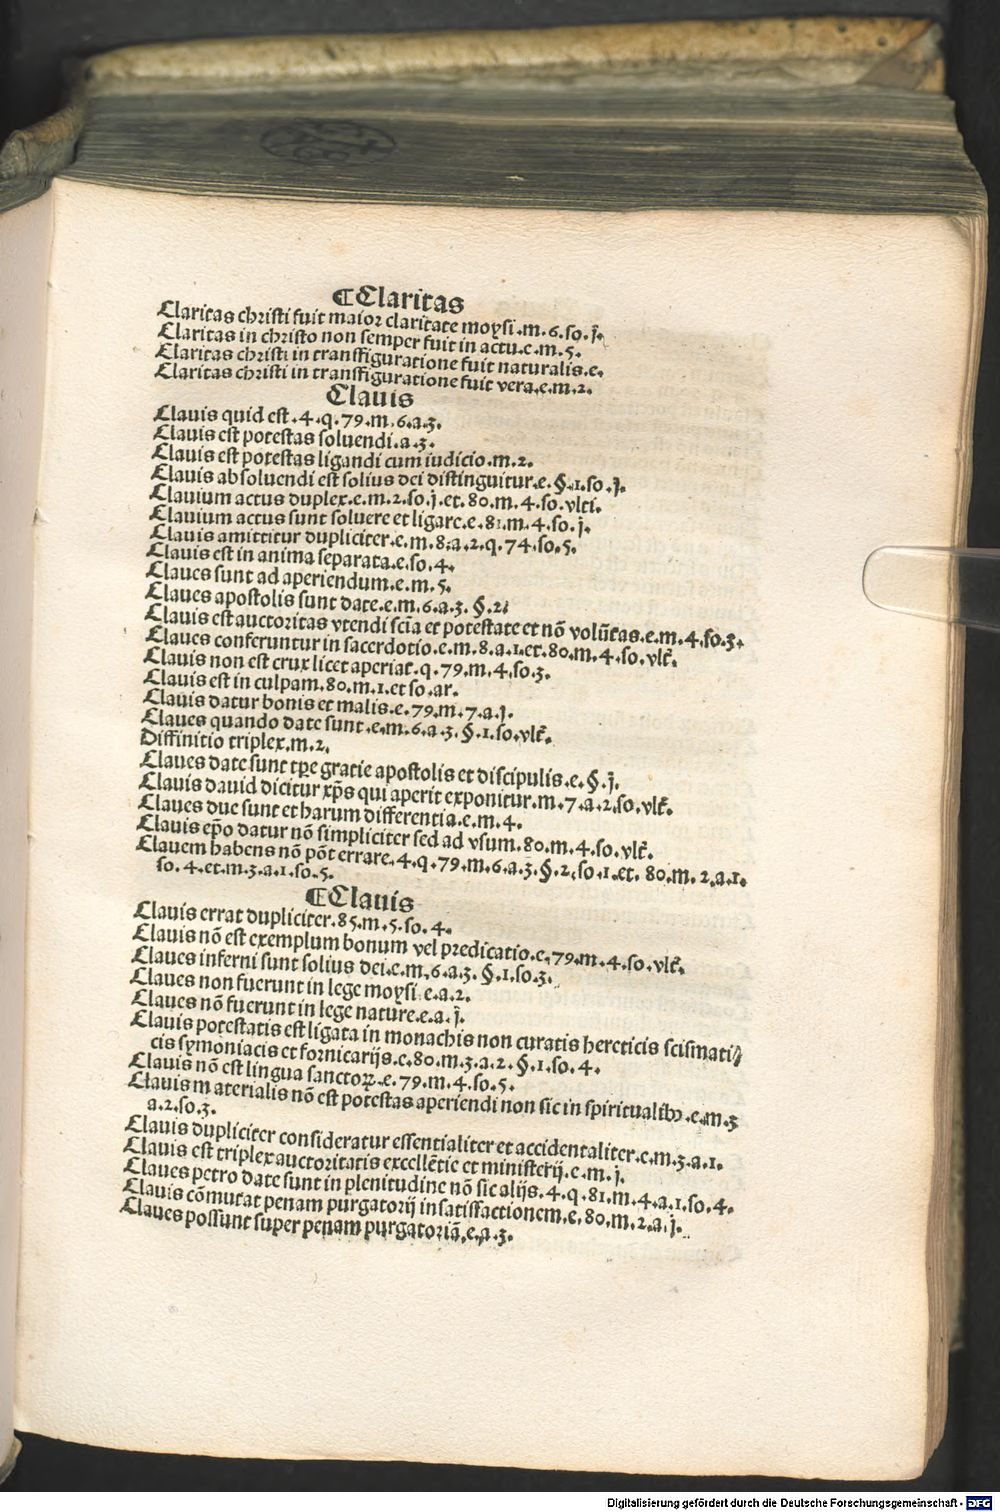 ¶Claritas
Claritas christi fuit maior claritate moysi.m.6.so.j.
Claritas in christo non semper fuit in actu.e.m.5.
Claritas christi in transffiguratione fuit naturalis.e.
Claritas christi in transffiguratione fuit vera.e.m.2.
Clauis
Clauis quid est.4.q.79.m.6.a.3.
Clauis est potestas soluendi.a.3.
Clauis est potestas ligandi cum iudicio.m.2.
Clauis absoluendi est solius dei distinguitur.e.§.1.so.j.
Clauium actus duplex.e.m.2.so.j.et.80.m.4.so.vlti.
Clauium actus sunt soluere et ligare.e.81.m.4.so.j.
Clauis amittitur dupliciter.e.m.8.a.2.q.74.so.5.
Clauis est in anima separata.e.so.4.
Claues sunt ad aperiendum.e.m.5.
Claues apostolis sunt date.e.m.6.a.3.§.2.
Clauis est auctoritas vtendi scīa et potestate et nō volūtas.e.m.4.so.3.
Claues conferuntur in sacerdotio.e.m.8.a.1.et.80.m.4.so.vlt̄.
Clauis non est crux licet aperiat.q.79.m.4.so.3.
Clauis est in culpam.80.m.1.et so.ar.
Clauis datur bonis et malis.e.79.m.7.a.j.
Claues quando date sunt.e.m.6.a.3.§.1.so.vlt̄.
Diffinitio triplex.m.2.
Claues date sunt tp̄e gratie apostolis et discipulis.e.§.j.
Clauis dauid dicitur xp̄s qui aperit exponitur.m.7.a.2.so.vlt̄.
Claues due sunt et harum differentia.e.m.4.
Clauis ep̄o datur nō simpliciter sed ad vsum.80.m.4.so.vlt̄.
Clauem habens nō pōt errare.4.q.79.m.6.a.3.§.2.so.1.et.80.m.2.a.1.
so.4.et.m.3.a.1.so.5.
¶Clauis
Clauis errat dupliciter.85.m.5.so.4.
Clauis nō est exemplum bonum vel predicatio.e.79.m.4.so.vlt̄.
Claues inferni sunt solius dei.e.m.6.a.3.§.1.so.3.
Claues non fuerunt in lege moysi.e.a.2.
Claues nō fuerunt in lege nature.e.a.j.
Clauis potestatis est ligata in monachis non curatis hereticis scismati⸗
cis symoniacis et fornicarijs.e.80.m.3.a.2.§.1.so.4.
Clauis nō est lingua sanctoꝝ.e.79.m.4.so.5.
Clauis materialis nō est potestas aperiendi non sic in spiritualibꝫ.e.m.3
a.2.so.3.
Clauis dupliciter consideratur essentialiter et accidentaliter.e.m.3.a.1.
Clauis est triplex auctoritatis excellētie et ministerij.e.m.j.
Claues petro date sunt in plenitudine nō sic alijs.4.q.81.m.4.a.1.so.4.
Clauis cōmutat penam purgatorij in satisfactionem.e.80.m.2.a.j.
Claues possunt super penam purgatoriā.e.a.3.
Digitalisierung gefördert durch die Deutsche Forschungsgemeinschaft - DFG